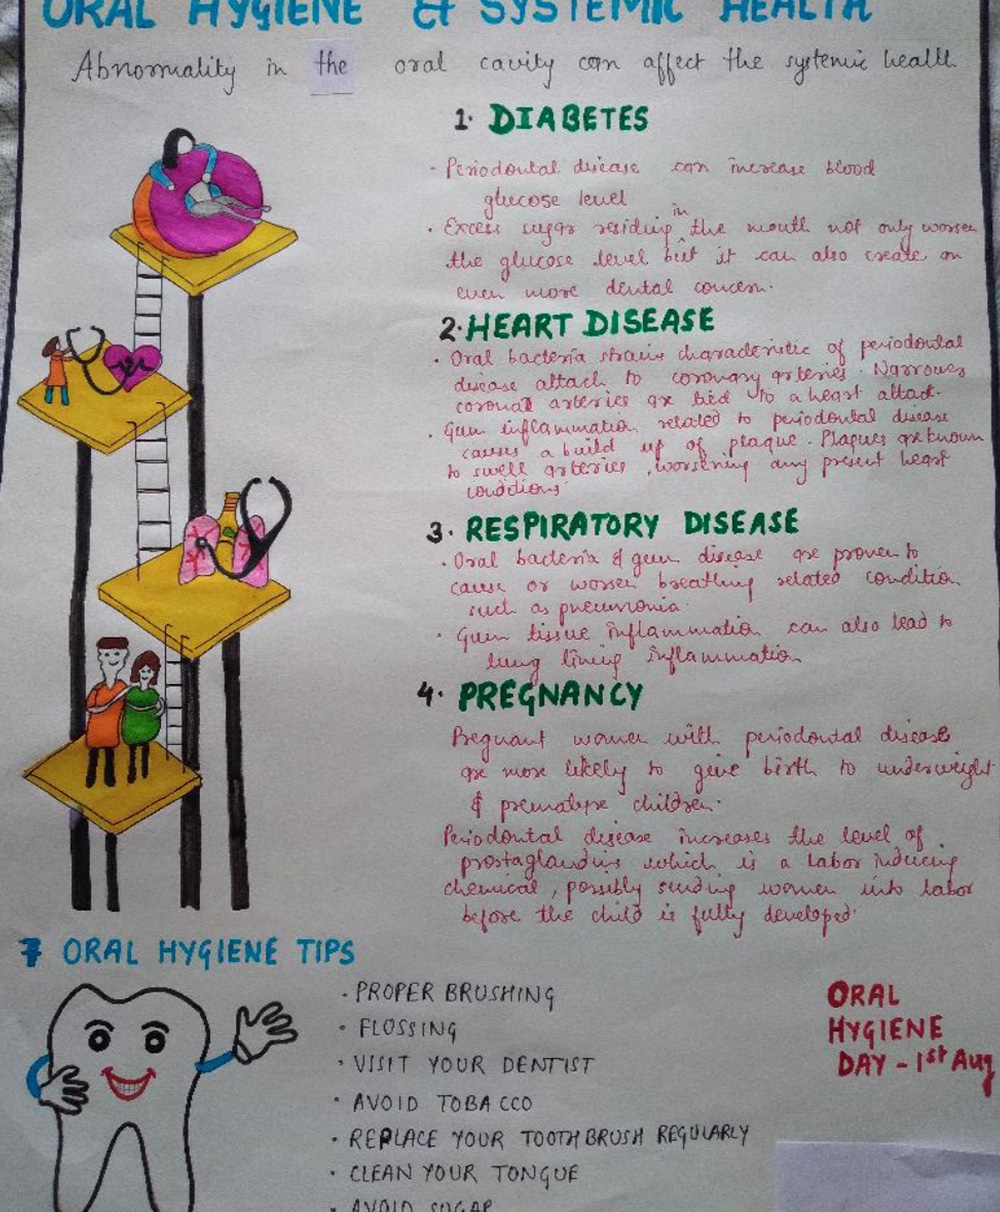 ORAL HYGIENE & SYSTEMIC HEALTH
Abnormality in the oral cavity can affect the systemic health
1. DIABETES
· Periodontal disease can increase blood
glucose level
· Excess sugar residing in the mouth not only worsen
the glucose level but it can also create an
even more dental concern.
2. HEART DISEASE
· Oral bacteria strains characteristic of periodontal
disease attach to coronary arteries. Narrower
coronal arteries are tied to a heart attack.
· Gum inflammation related to periodontal disease
causes a build up of plaque. Plaques are known
to swell arteries, worsening any present heart
conditions
3. RESPIRATORY DISEASE
· Oral bacteria & gum disease are proven to
cause or worsen breathing related condition
such as pneumonia.
· Gum tissue inflammation can also lead to
lung lining inflammation
4. PREGNANCY
Pregnant women with periodontal disease
are more likely to give birth to underweight
& premature children.
Periodontal disease increases the level of
prostaglandins which is a labor inducing
chemical, possibly sending women into labor
before the child is fully developed.
7 ORAL HYGIENE TIPS
· PROPER BRUSHING
· FLOSSING
· VISIT YOUR DENTIST
· AVOID TOBACCO
· REPLACE YOUR TOOTHBRUSH REGULARLY
· CLEAN YOUR TONGUE
· AVOID SUGAR
ORAL
HYGIENE
DAY - 1st Aug